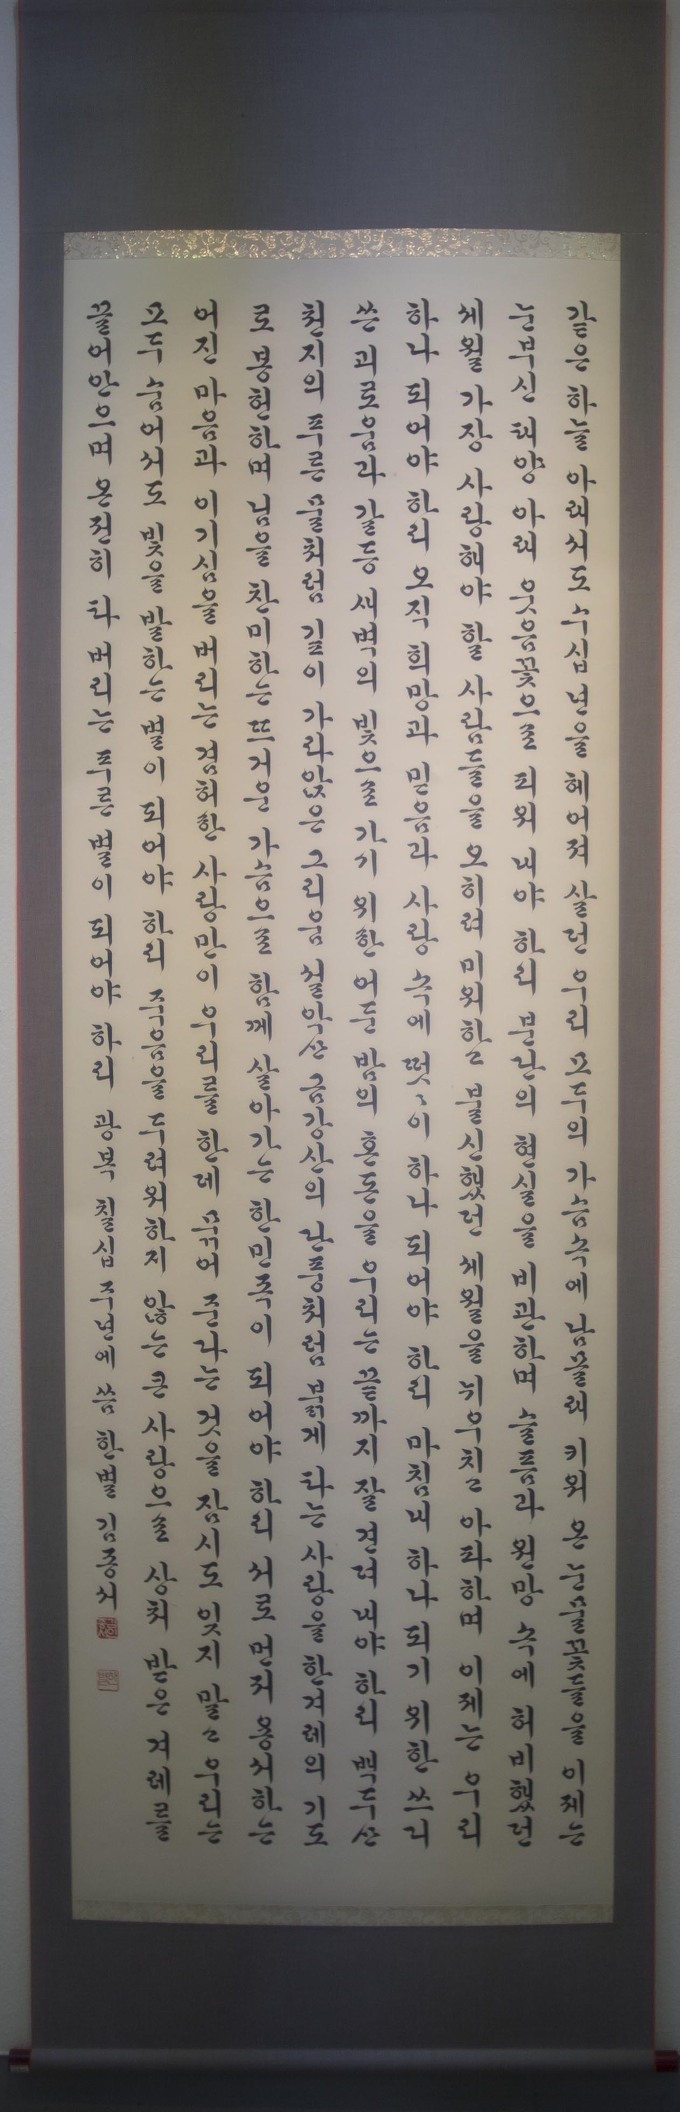 같은 하늘 아래서도 수십 년을 헤어져 살던 우리 모두의 가슴속에 남몰래 키워 온 눈물꽃들을 이제는
눈부신 태양 아래 웃음꽃으로 피워 내야 하리 분단의 현실을 비관하며 슬픔과 원망 속에 허비했던
세월 가장 사랑해야 할 사람들을 오히려 미워하고 불신했던 세월을 뉘우치고 아파하며 이제는 우리
하나 되어야 하리 오직 희망과 믿음과 사랑 속에 떳떳이 하나 되어야 하리 마침내 하나 되기 위한 쓰리
쓴 괴로움과 갈등 새벽의 빛으로 가기 위한 어둔 밤의 혼동을 우리는 끝까지 잘 견뎌 내야 하리 백두산
천지의 푸른 물처럼 깊이 가라앉은 그리움 설악산 금강산의 단풍처럼 붉게 타는 사랑을 한겨레의 기도
로 봉헌하며 님을 찬미하는 뜨거운 가슴으로 함께 살아가는 한민족이 되어야 하리 서로 먼저 용서하는
어진 마음과 이기심을 버리는 겸허한 사랑만이 우리를 한데 묶어 준다는 것을 잠시도 잊지 말고 우리는
모두 숨어서도 빛을 발하는 별이 되어야 하리 죽음을 두려워하지 않는 큰 사랑으로 상처 받은 겨레를
끌어안으며 온전히 타 버리는 푸른 별이 되어야 하리 광복 칠십 주년에 씀 한별 김종서